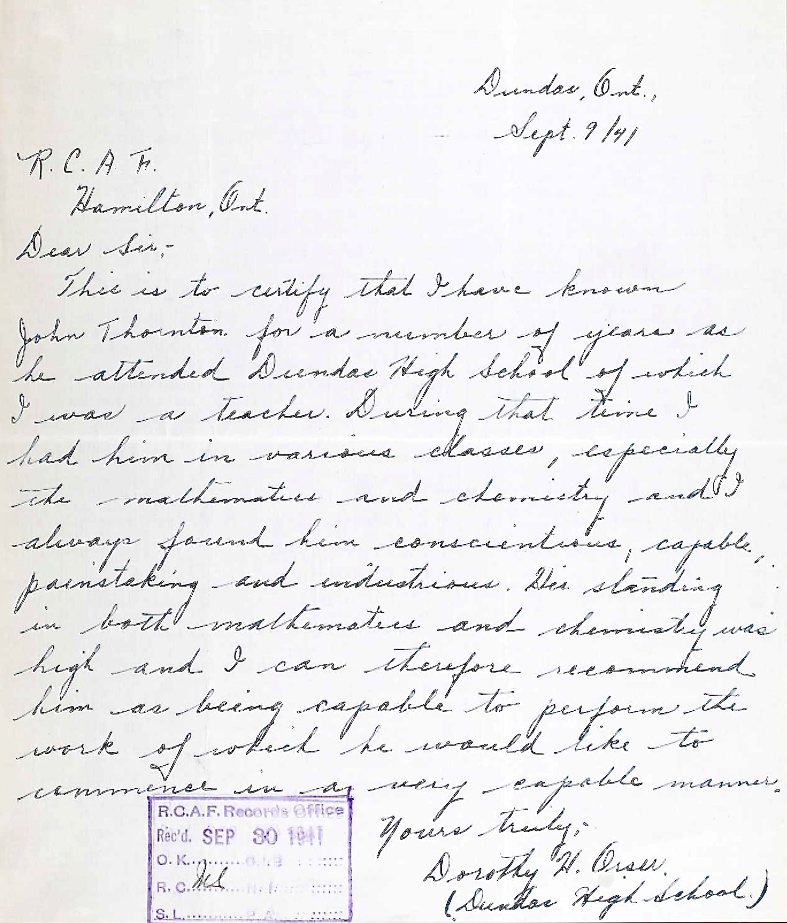 Dundas, Ont.,
Sept. 9/41
R. C. A. F.
Hamilton, Ont.
Dear Sir;-
This is to certify that I have known
John Thornton for a number of years as
he attended Dundas High School of which
I was a teacher. During that time I
had him in various classes, especially
the mathematics and chemistry and I
always found him conscientious, capable,
painstaking and industrious. His standing
in both mathematics and chemistry was
high and I can therefore recommend
him as being capable to perform the
work of which he would like to
commence in a very capable manner.
Yours truly;-
Dorothy H. Orser.
(Dundas High School.)
R.C.A.F. Records Office
Rec'd. SEP 30 1941
O.K.
R.C.
S.L. P.A.